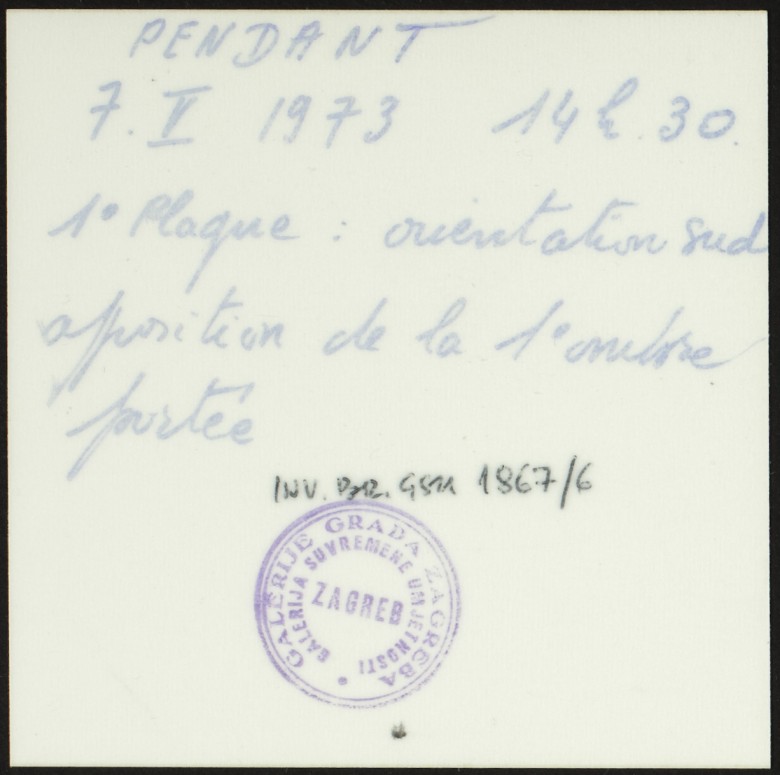 PENDANT
7. V 1973 14h.30.
1° Plaque : orientation sud
aposition de la 1° ombre
portée
INV. BR. GSU 1867/6
GALERIJE GRADA ZAGREBA
GALERIJA SUVREMENE UMJETNOSTI
ZAGREB